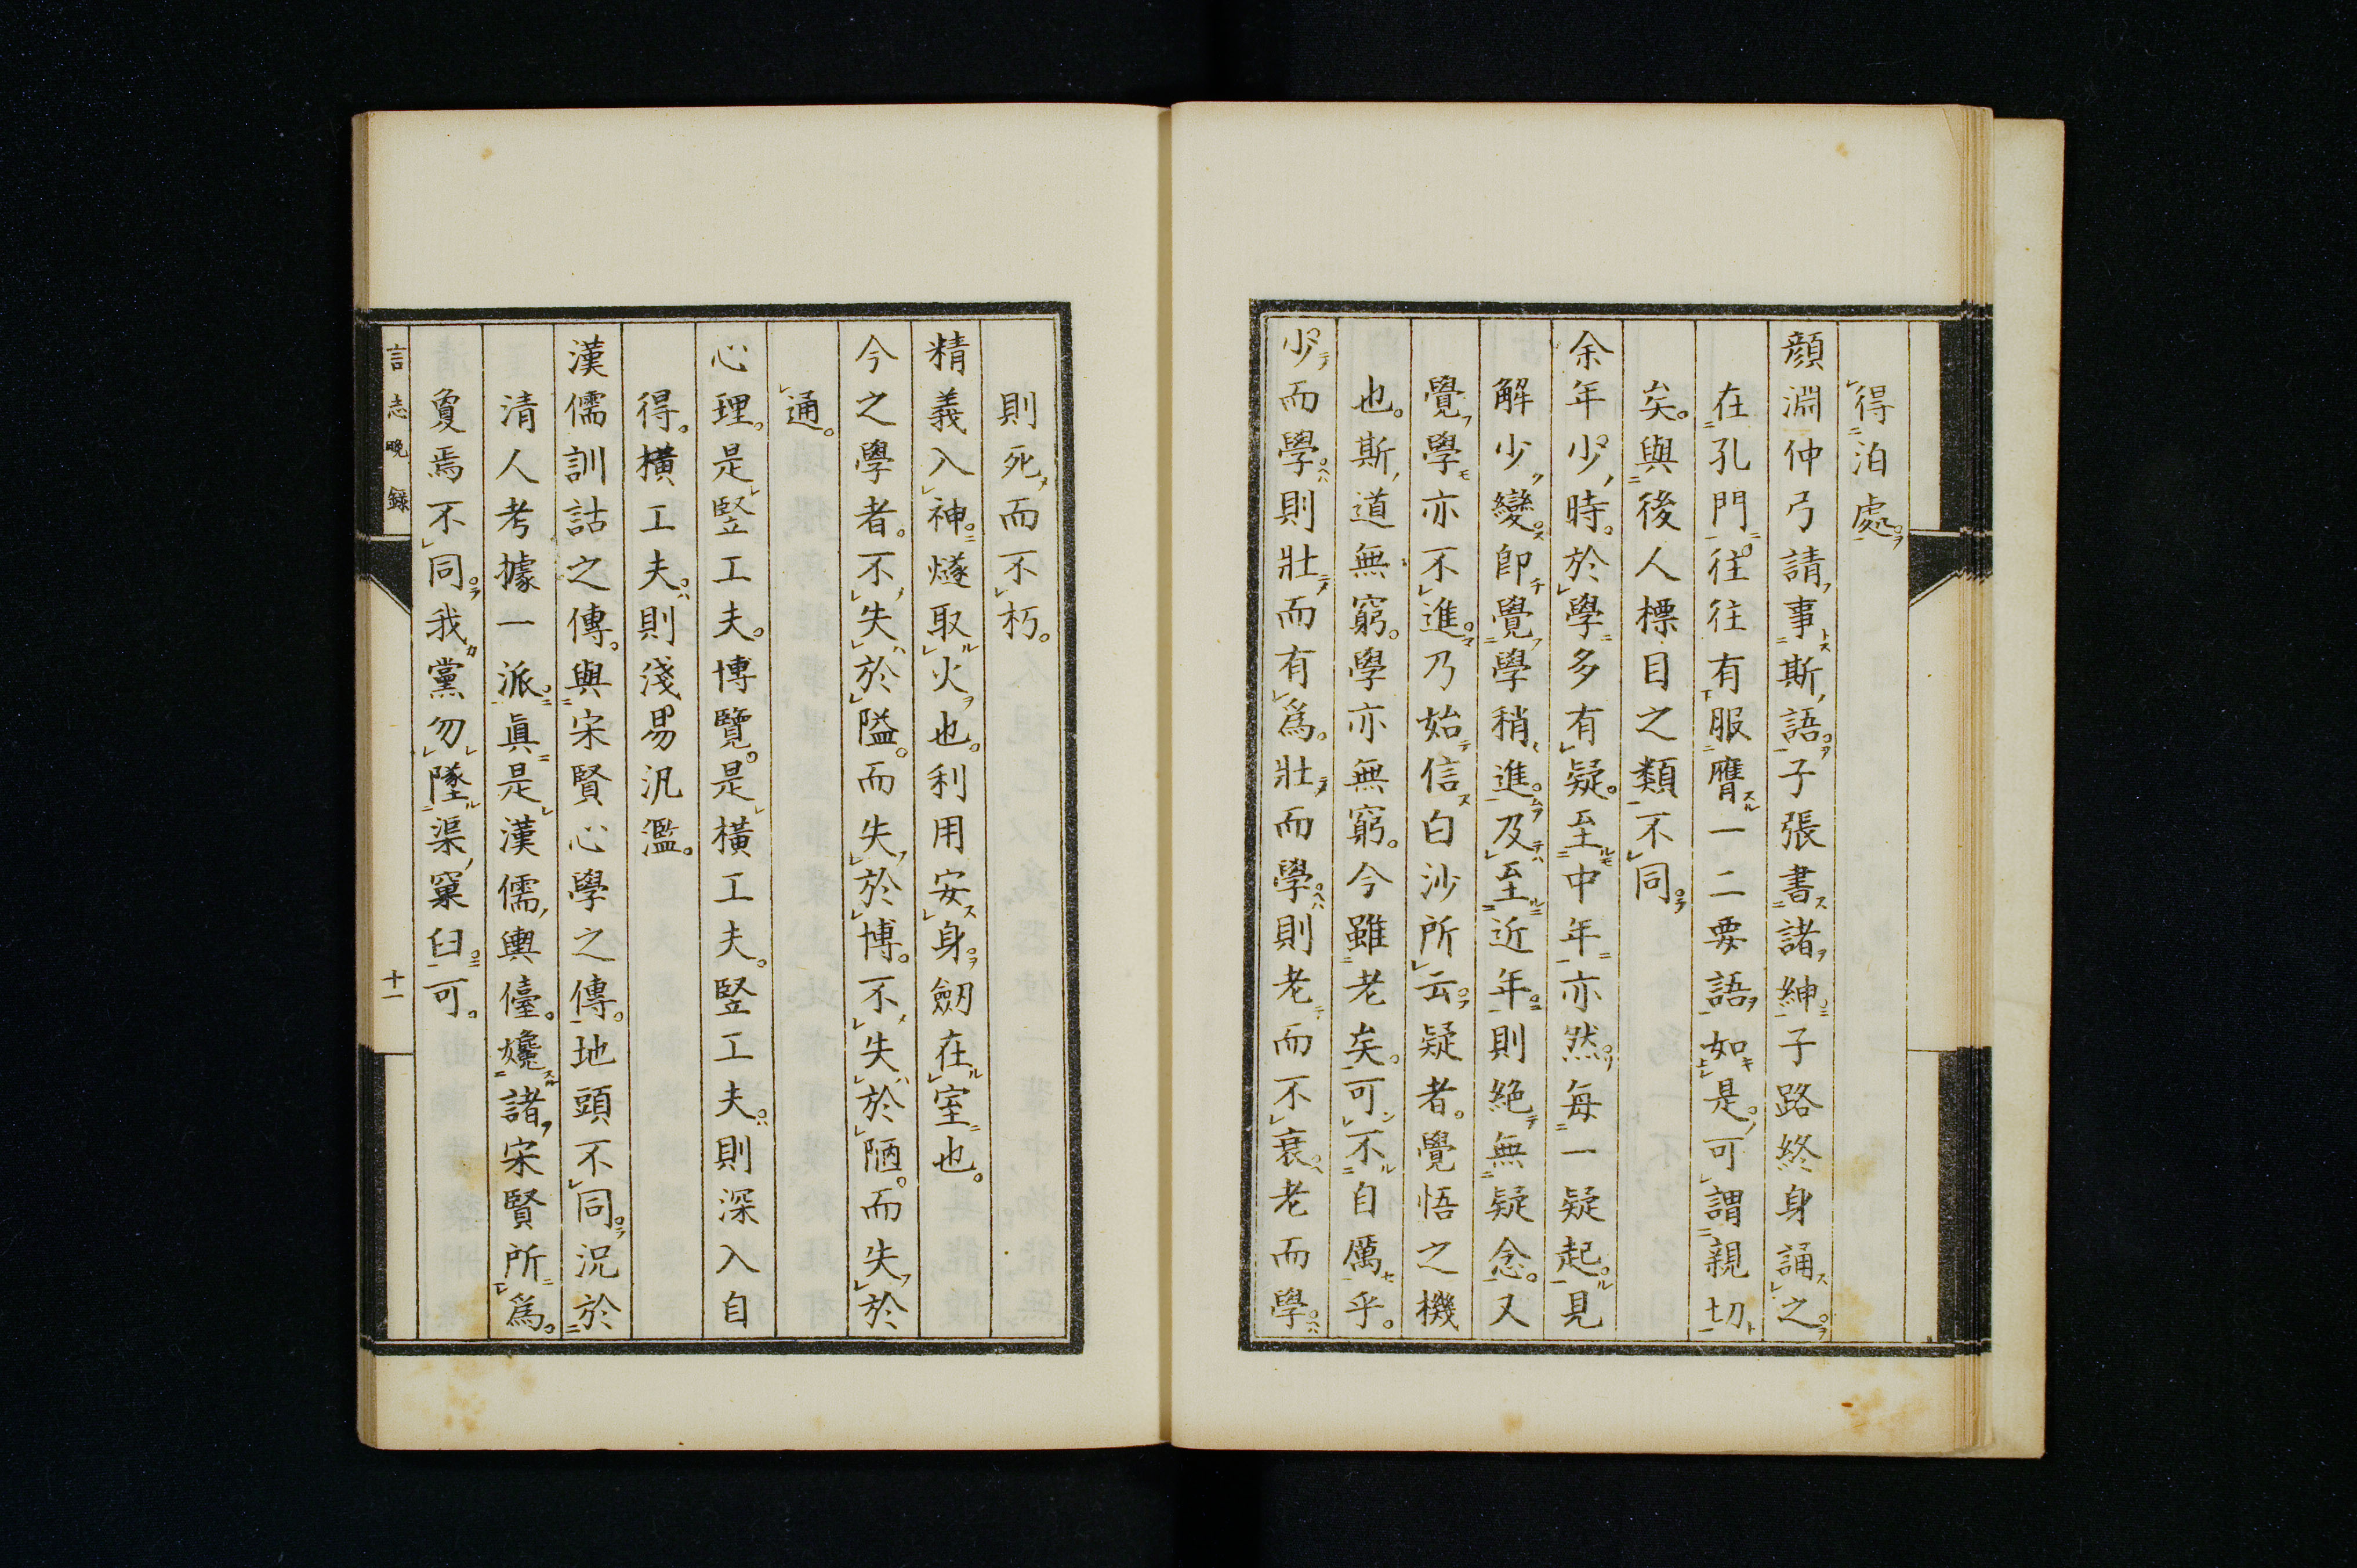 得泊處。
顔淵仲弓請事斯語。子張書諸紳。子路終身誦之。
在孔門。往往有服膺一二要語。如是。可謂親切
矣。與後人標目之類不同。
余年少時。於學多有疑。至中年亦然。每一疑起。見
解少變。卽覺學稍進。及至近年。則絶無疑念。又
覺學亦不進。乃始信白沙所云。疑者。覺悟之機
也。斯道無窮。學亦無窮。今雖老矣。可不自厲乎。
少而學。則壯而有爲。壯而學。則老而不衰。老而學。
則死而不朽。
精義入神。燧取火也。利用安身。劒在室也。
今之學者。不失於隘。而失於博。不失於陋。而失於
通。
心理。是竪工夫。博覽。是橫工夫。竪工夫。則深入自
得。橫工夫。則淺易汎濫。
漢儒訓詁之傳。與宋賢心學之傳。地頭不同。況於
清人考據一派。眞是漢儒輿儓。媿諸宋賢所爲。
敻焉不同。我黨勿墜渠窠臼可。
言志晩錄
十一